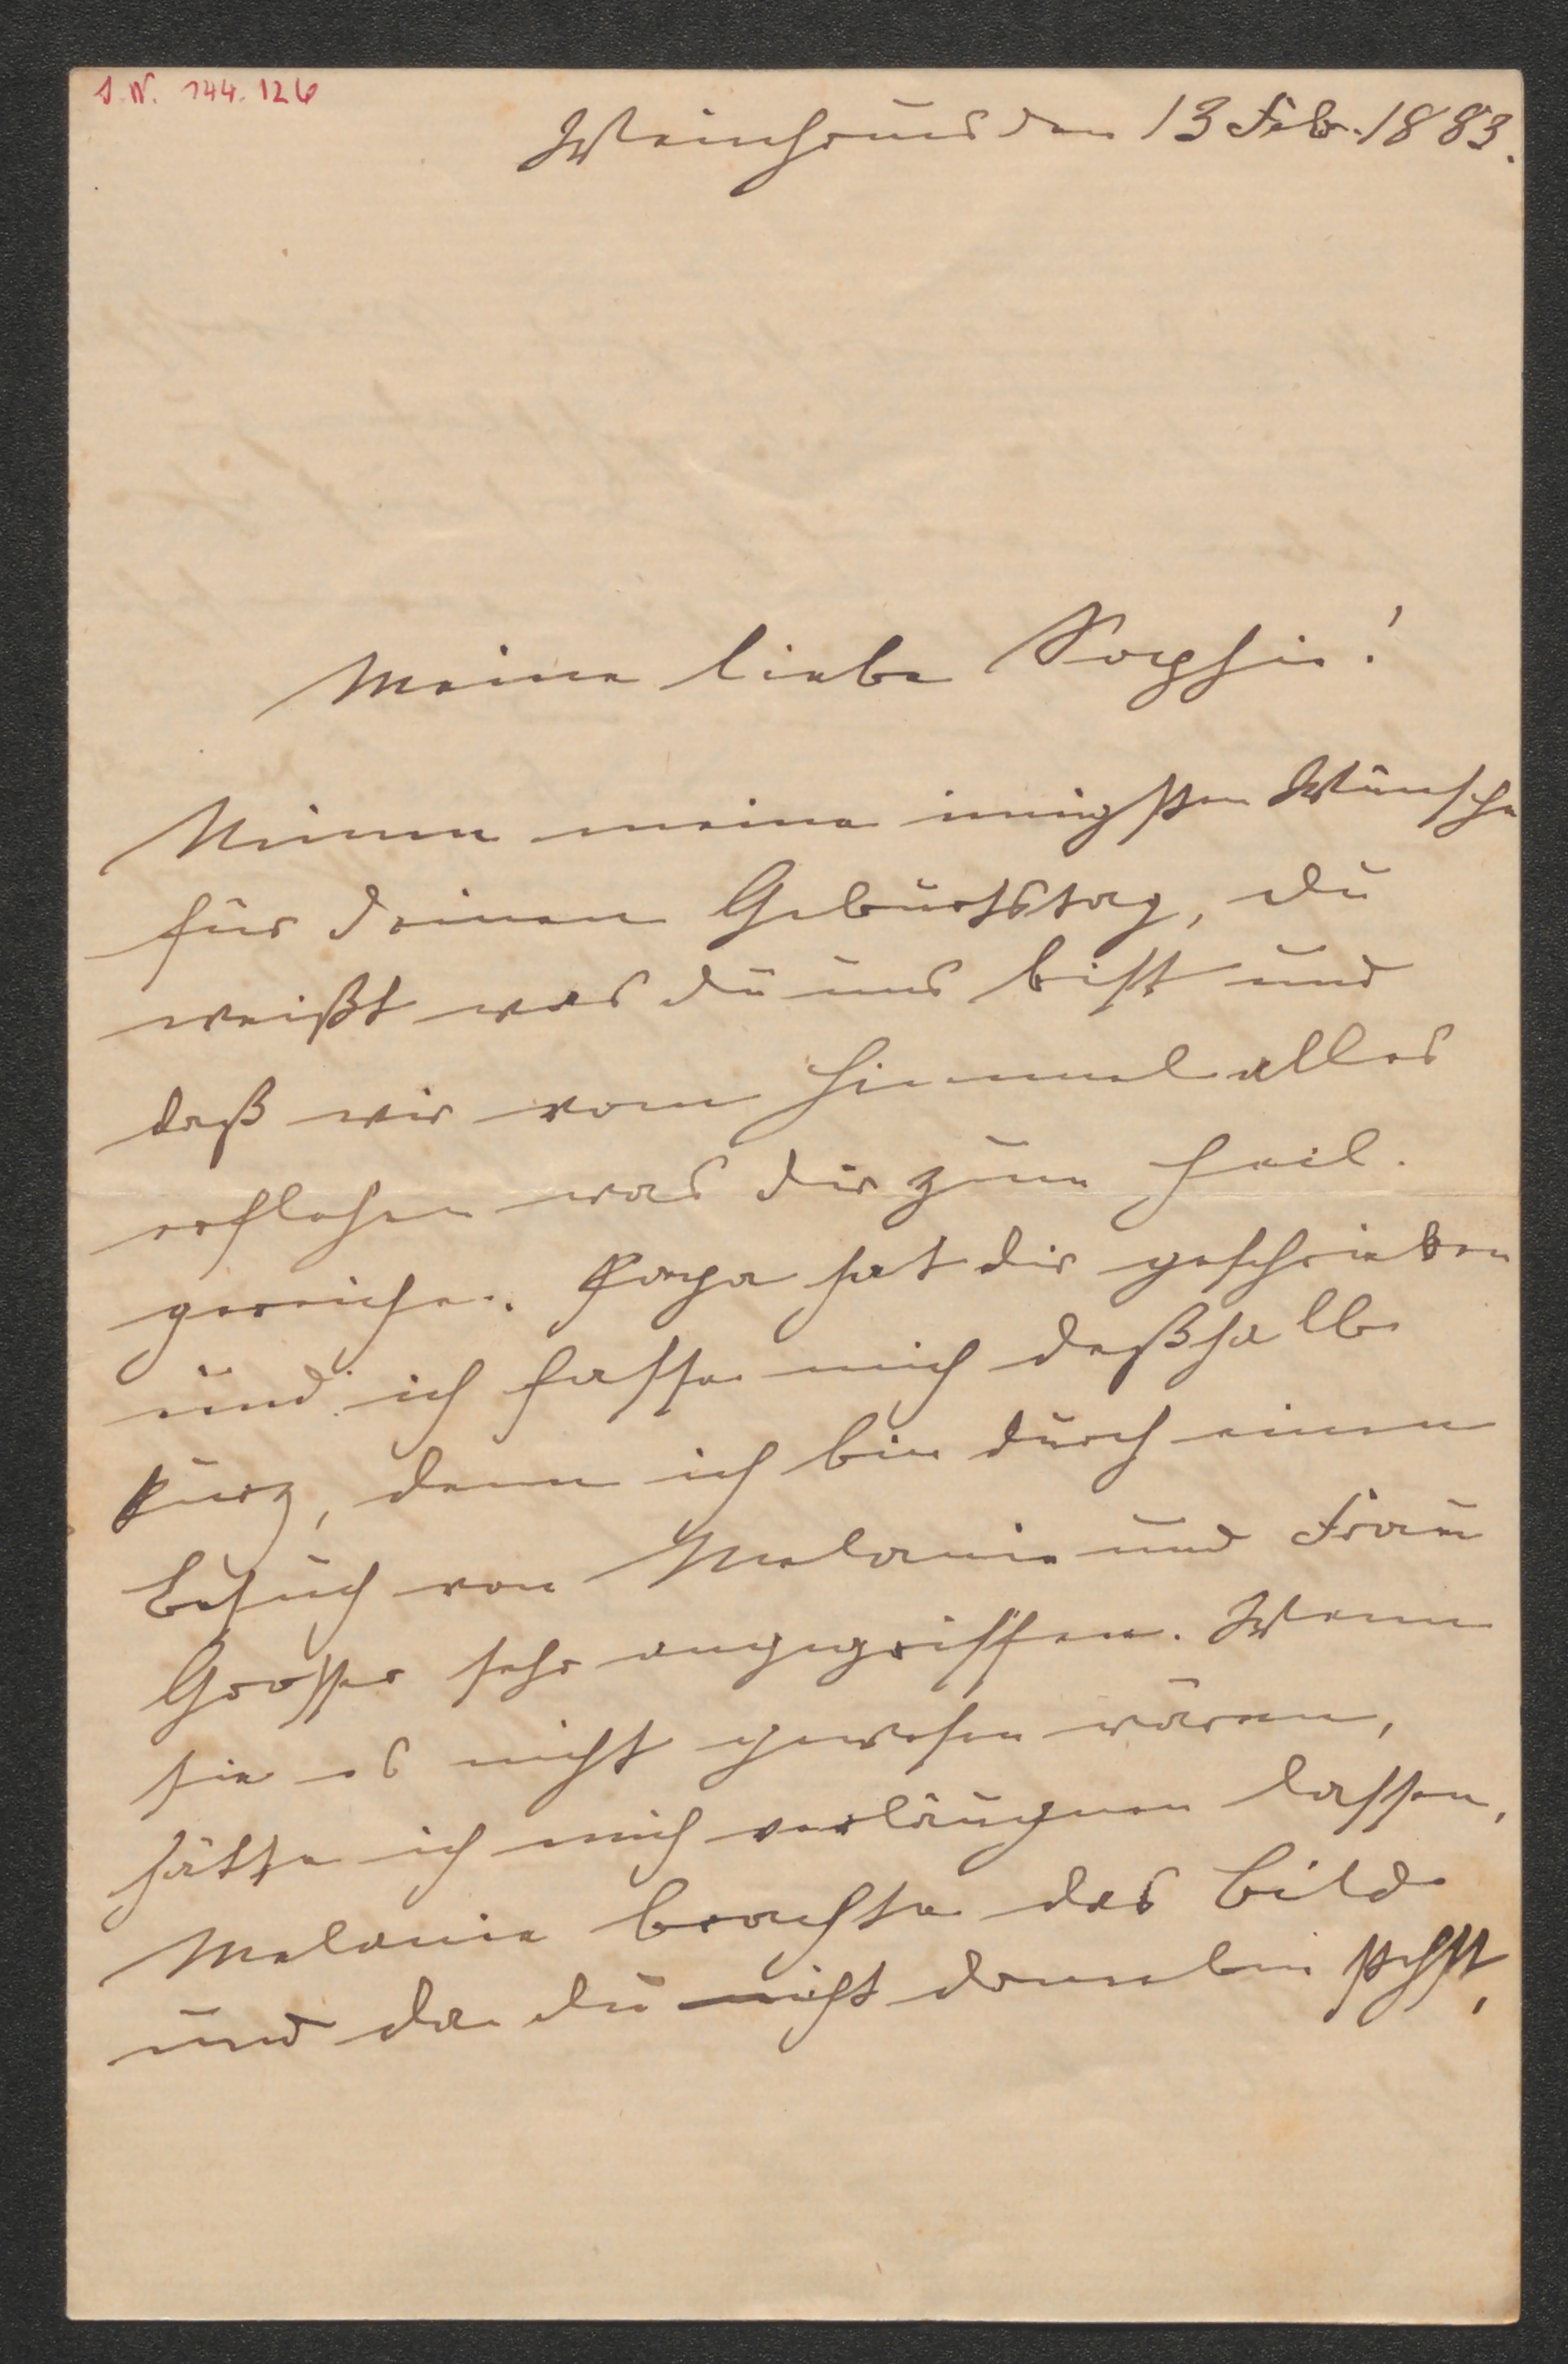 J.N. 144.126
Weinhaus den 13 Feb. 1883.
Meine liebe Sophie!
Nimm meine innigsten Wünsche
für deinen Geburtstag, du
weißt was du uns bist und
daß wir vom Himmel alles
erflehen was dir zum Heil.
gereiche. Papa hat dir geschrieben
und ich fasse mich deßhalb
kurz, denn ich bin durch einen
Besuch von Melanie und Frau
Grosser sehr angegriffen. Wenn
sie es nicht gewesen wären,
hätte ich mich verläugnen lassen,
Melanie brachte das Bild
und da du nicht daneben stehst,